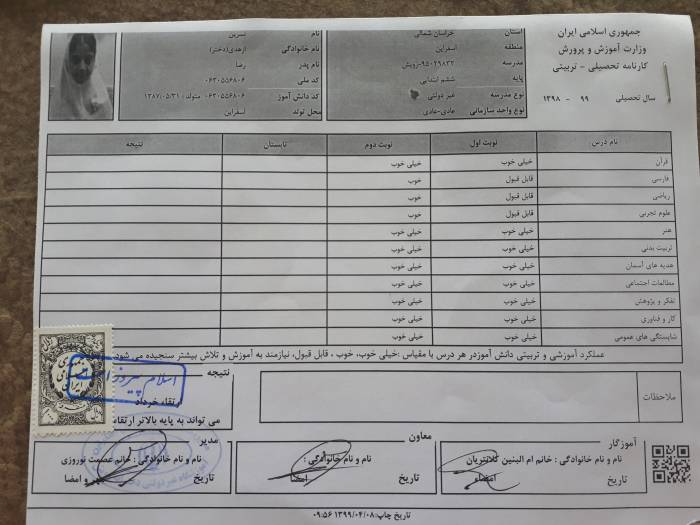 جمهوری اسلامی ایران
وزارت آموزش و پرورش
کارنامه تحصیلی - تربیتی
سال تحصیلی ۹۹ - ۱۳۹۸
استان خراسان شمالی
منطقه اسفراین
مدرسه ۹۵۰۲۹۸۳۲-رویش
پایه ششم ابتدایی
نوع مدرسه غیر دولتی
نوع واحد سازمانی عادی-عادی
نام نسرین
نام خانوادگی ازهدی(دختر)
نام پدر رضا
کد ملی ۰۶۳۰۵۵۶۸۰۶
کد دانش آموز ۰۶۳۰۵۵۶۸۰۶ متولد: ۱۳۸۷/۰۵/۳۱
محل تولد اسفراین
نام درس نوبت اول نوبت دوم تابستان نتیجه
قرآن خیلی خوب خیلی خوب
فارسی قابل قبول خوب
ریاضی قابل قبول خوب
علوم تجربی قابل قبول خوب
هنر خیلی خوب خیلی خوب
تربیت بدنی خیلی خوب خیلی خوب
هدیه های آسمان خیلی خوب خیلی خوب
مطالعات اجتماعی خیلی خوب خیلی خوب
تفکر و پژوهش خیلی خوب خیلی خوب
کار و فناوری خیلی خوب خیلی خوب
شایستگی های عمومی خیلی خوب خیلی خوب
عملکرد آموزشی و تربیتی دانش آموزدر هر درس با مقیاس :خیلی خوب، خوب ، قابل قبول، نیازمند به آموزش و تلاش بیشتر سنجیده می شود
ملاحظات
نتیجه
اسلام پیروز است
ارتقاء خرداد
می تواند به پایه بالاتر ارتقاء
آموزگار
نام و نام خانوادگی : خانم ام البنین کلانتریان
تاریخ امضاء
معاون
نام و نام خانوادگی :
تاریخ امضا
مدیر
نام و نام خانوادگی : خانم عصمت نوروزی
تاریخ مهر و امضا
تاریخ چاپ:۱۳۹۹/۰۴/۰۸ ۰۹:۵۶